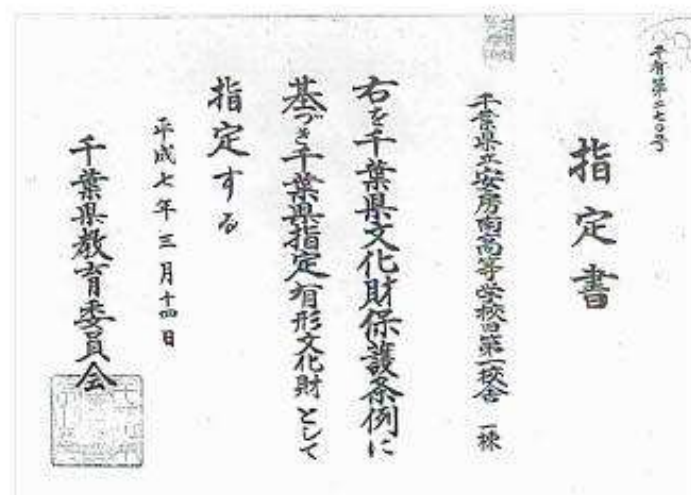 千有第二七〇号
指定書
千葉県立安房南高等学校旧第一校舎 一棟
右を千葉県文化財保護条例に
基づき千葉県指定有形文化財として
指定する
平成七年三月十四日
千葉県教育委員会